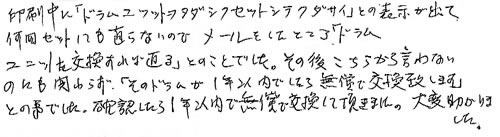 印刷中に「ドラムユニットヲタダシクセットシテクダサイ」との表示が出て、
何回セットしても直らないのでメールをしたところ「ドラム
ユニットを交換すれば直る」とのことでした。その後こちらから言わない
のにも関わらず、「そのドラムが1年以内でしたら無償で交換致します」
との事でした。確認したら1年以内で無償で交換して頂きました。大変助かりま
した。